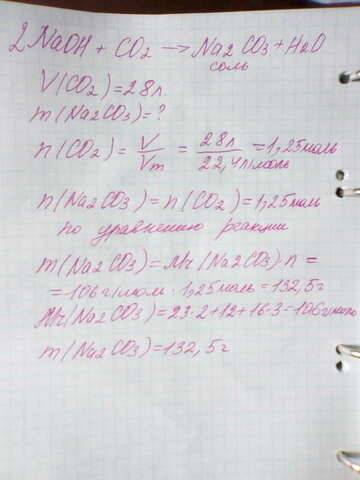 2NaOH + CO2 → Na2CO3 + H2O
соль
V(CO2) = 28л
m(Na2CO3) = ?
n(CO2) = V/Vm = 28л/22,4л/моль = 1,25моль
n(Na2CO3) = n(CO2) = 1,25моль
по уравнению реакции
m(Na2CO3) = Mr(Na2CO3)·n =
= 106г/моль · 1,25моль = 132,5г
Mr(Na2CO3) = 23·2+12+16·3 = 106г/моль
m(Na2CO3) = 132,5г